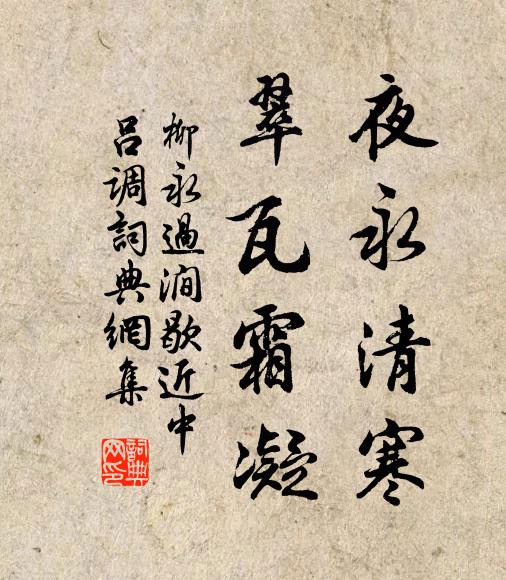 夜永清寒
翠瓦霜凝
柳永過澗歇近中
呂調詞典網集
詞典网印